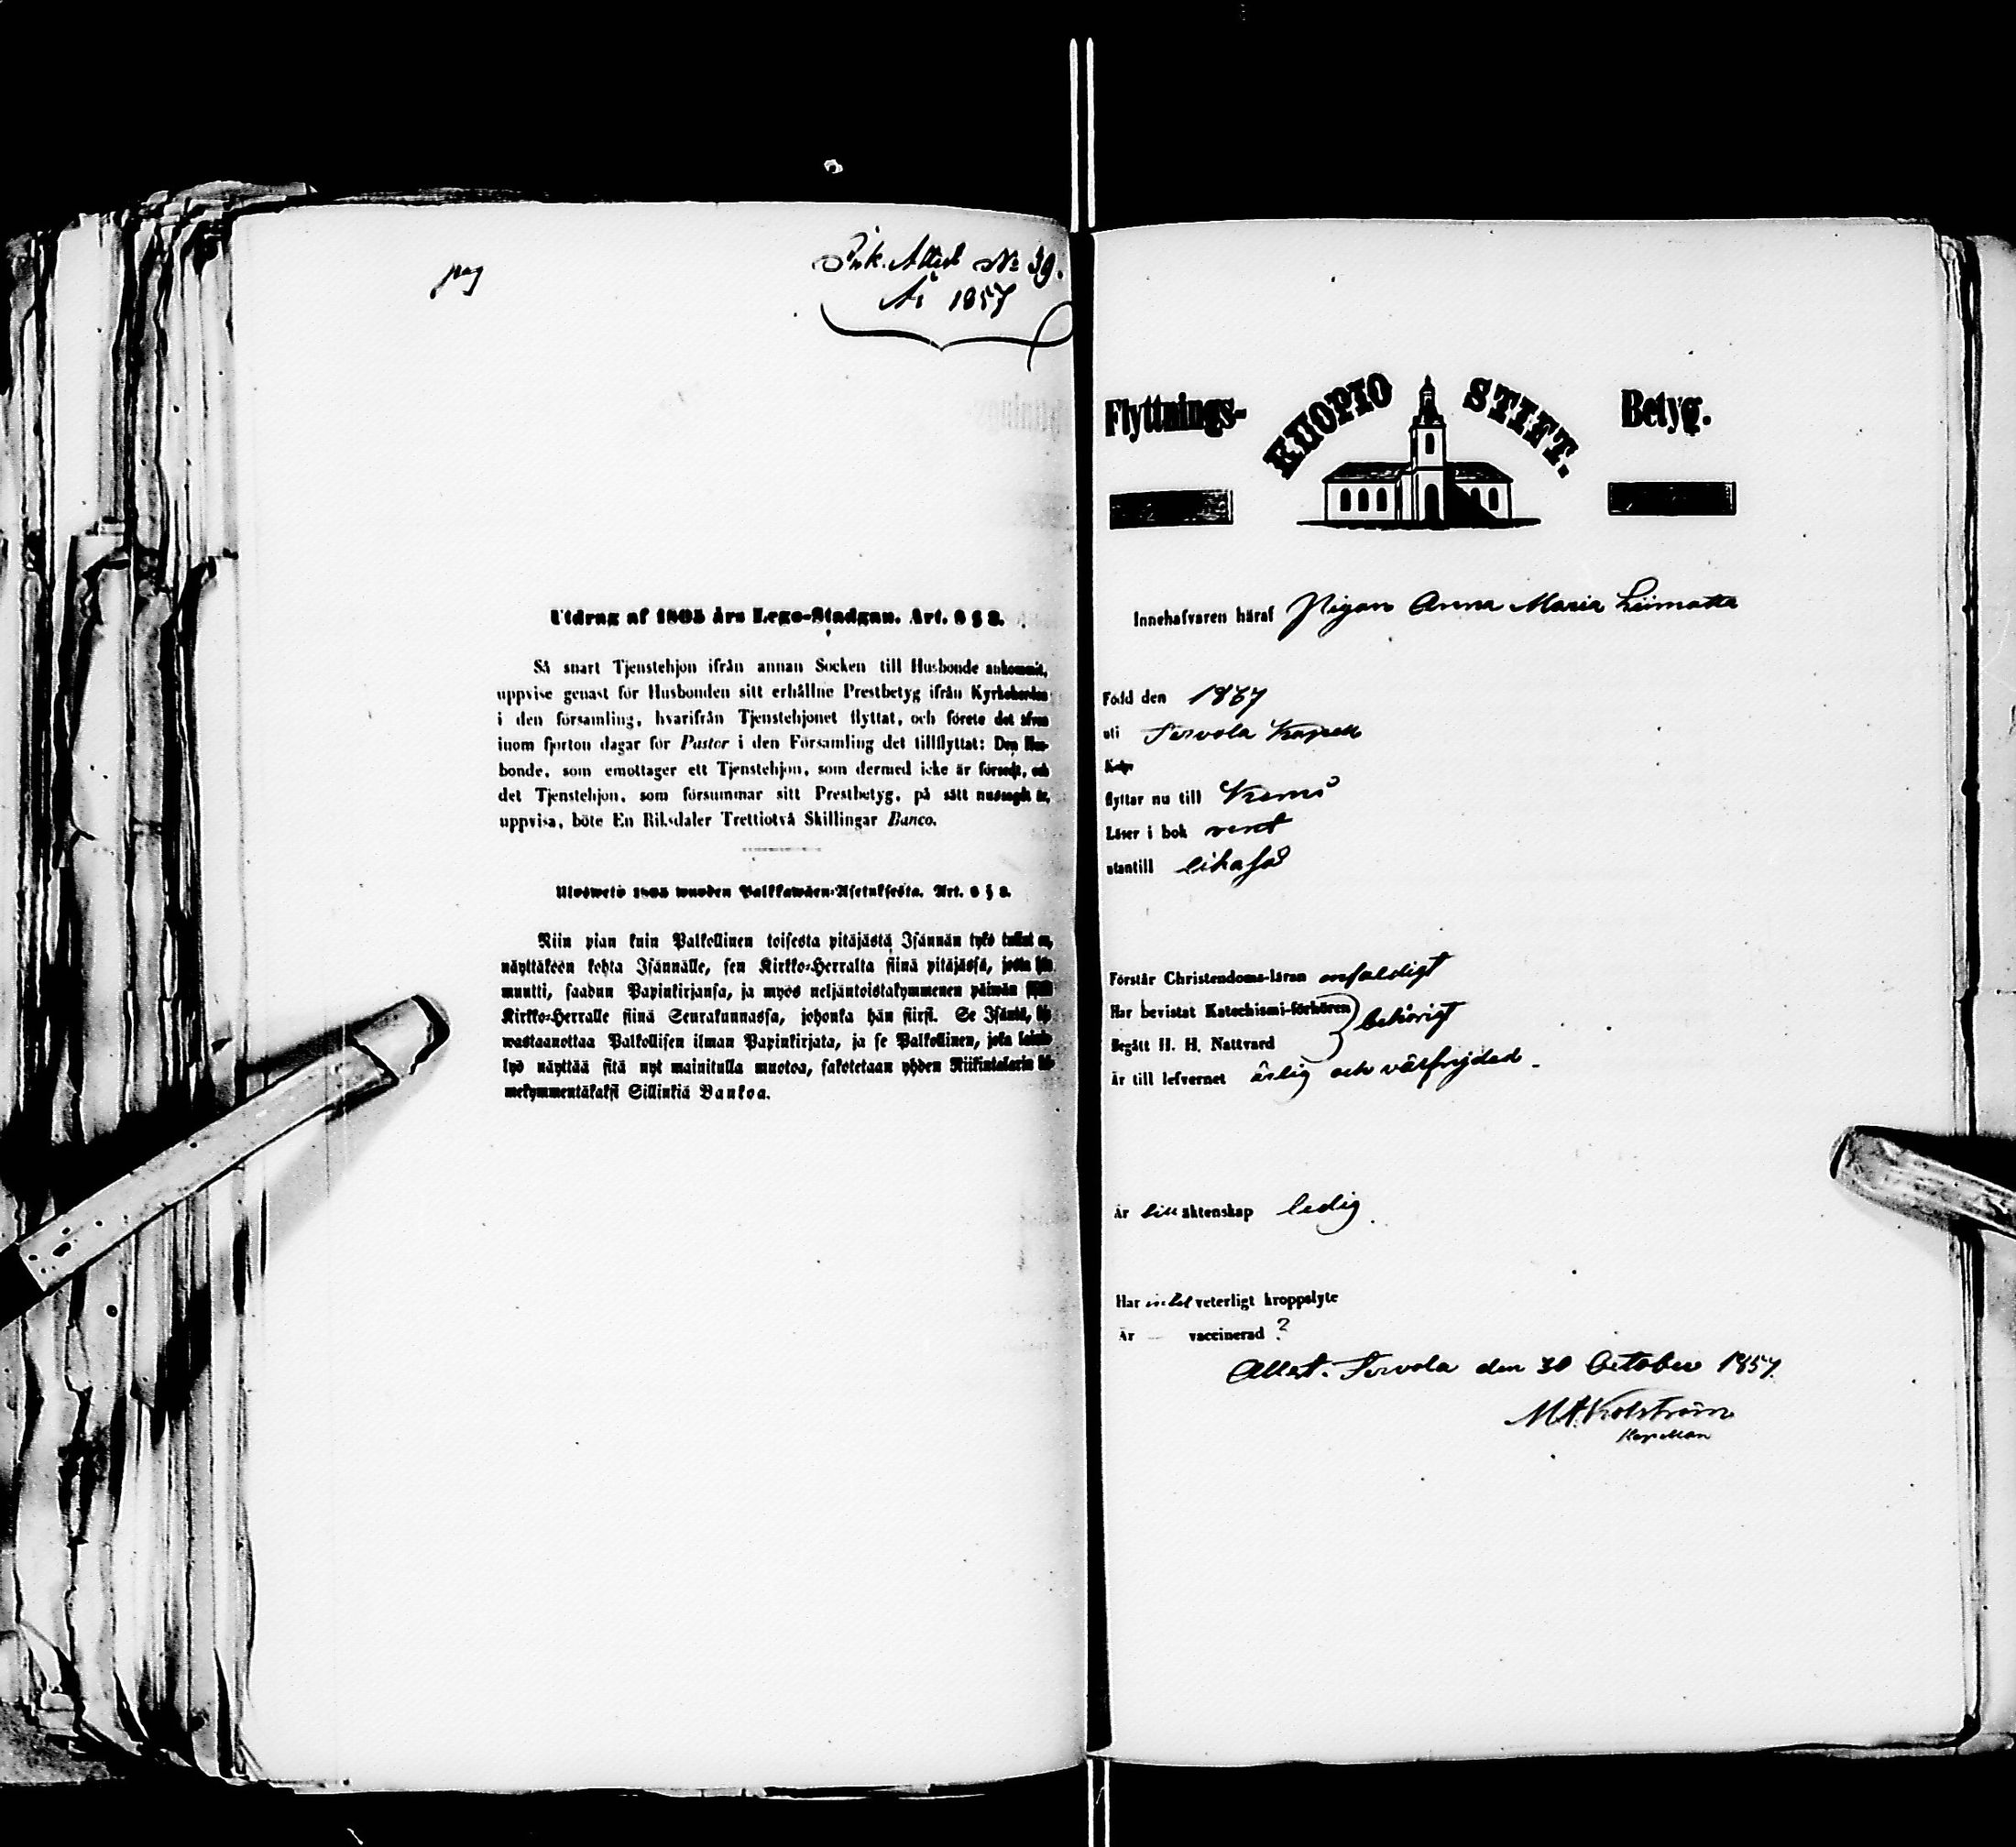 pag
Ink. Attest No 39.
År 1857
Utdrag af 1805 års Lego-Stadgan. Art. 6 § 2.
Så snart Tjenstehjon ifrån annan Socken till Husbonde ankommit,
uppvise genast för Husbonden sitt erhållne Prestbetyg ifrån Kyrkoherden
i den församling, hvarifrån Tjenstehjonet flyttat, och förete det äfven
inom fjorton dagar för Pastor i den Församling det tillflyttat: Den Hus-
bonde, som emottager ett Tjenstehjon, som dermed icke är försedt, och
det Tjenstehjon, som försummar sitt Prestbetyg, på sätt nusagdt är,
uppvisa, böte En Riksdaler Trettiotvå Skillingar Banco.
Uloswetö 1805 wuoden Palkkawäen-Asetuksesta. Art. 6 § 2.
Niin pian kuin Palkollinen toisesta pitäjästä Isännän tykö tullut on,
näyttäköön kohta Isännälle, sen Kirkko-Herralta siinä pitäjässä, josta hän
muutti, saadun Papinkirjansa, ja myös neljäntoistakymmenen päiwän
Kirkko-Herralle siinä Seurakunnassa, johonka hän siirsi. Se Isäntä,
wastaanottaa Palkollisen ilman Papinkirjata, ja se Palkollinen, joka
lyö näyttää sitä nyt mainitulla muotoa, sakotetaan yhden Riikintalarin
mekymmentäkaksi Sillinkiä Bankoa.
Flyttnings- KUOPIO STIFT. Betyg.
Innehafvaren häraf Pigan Anna Maria Liimatta
Född den 1837
uti Tervola Kapell
flyttar nu till Kemi
Läser i bok rent
utantill likaså
Förstår Christendoms-läran enfaldigt
Har bevistat Katechismi-förhören
behörigt
Begått H. H. Nattvard
Är till lefvernet ärlig och välfrejdad.
Är till äktenskap ledig.
Har intet veterligt kroppslyte
Är — vaccinerad ?
Attest. Tervola den 30 October 1857.
Kapellan